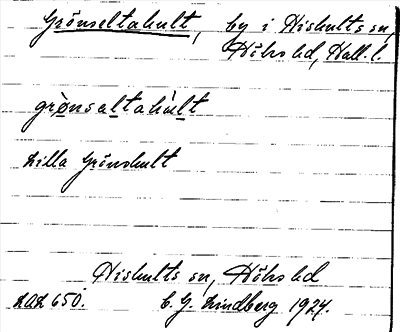 Grönseltahult, by i Hishults sn,
Höks hd, Hall. l.
grònsaltahùlt
Lilla Grönhult
Hishults sn, Höks hd
LAL 650. C. G. Lindberg 1924.